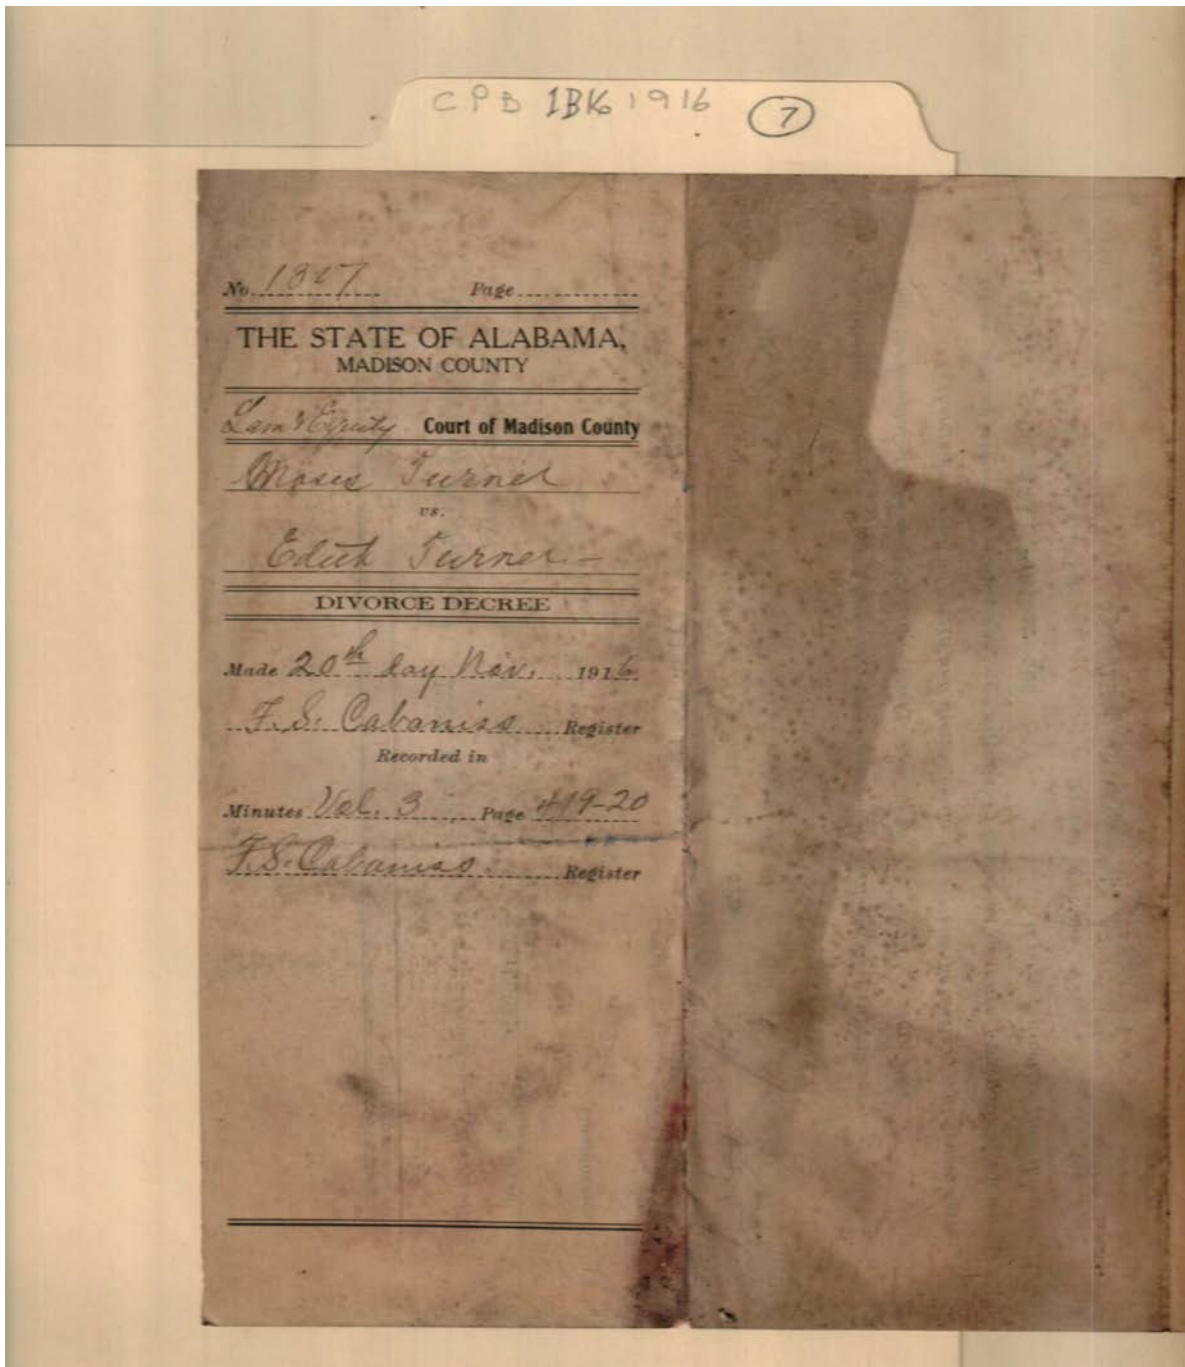 CPB IBK 1916 7
No. 1327 Page
THE STATE OF ALABAMA,
MADISON COUNTY
Law & Equity Court of Madison County
Moses Turner
vs.
Edith Turner –
DIVORCE DECREE
Made 20th day Nov. 1916
F. S. Cabaniss Register
Recorded in
Minutes Vol. 3, Page 419-20
F. S. Cabaniss Register